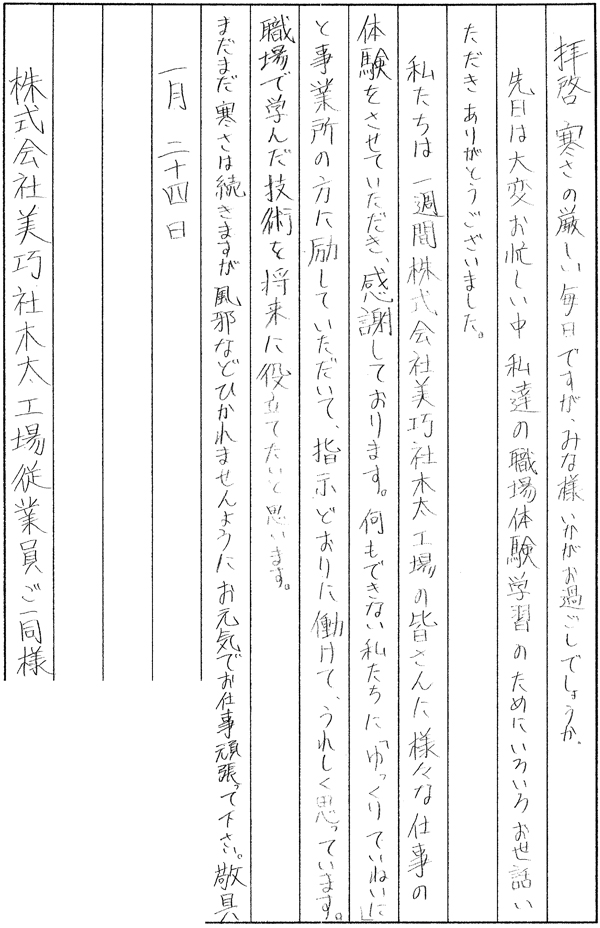 拝啓 寒さの厳しい毎日ですが、みな様いかがお過ごしでしょうか。
先日は大変お忙しい中私達の職場体験学習のためにいろいろお世話い
ただきありがとうございました。
私たちは一週間株式会社美巧社木太工場の皆さんに様々な仕事の
体験をさせていただき、感謝しております。何もできない私たちに「ゆっくりていねいに」
と事業所の方に励していただいて、指示どおりに働けて、うれしく思っています。
職場で学んだ技術を将来に役立てたいと思います。
まだまだ寒さは続きますが風邪などひかれませんようにお元気でお仕事頑張って下さい。敬具
一月 二十四日
株式会社美巧社木太工場従業員ご一同様